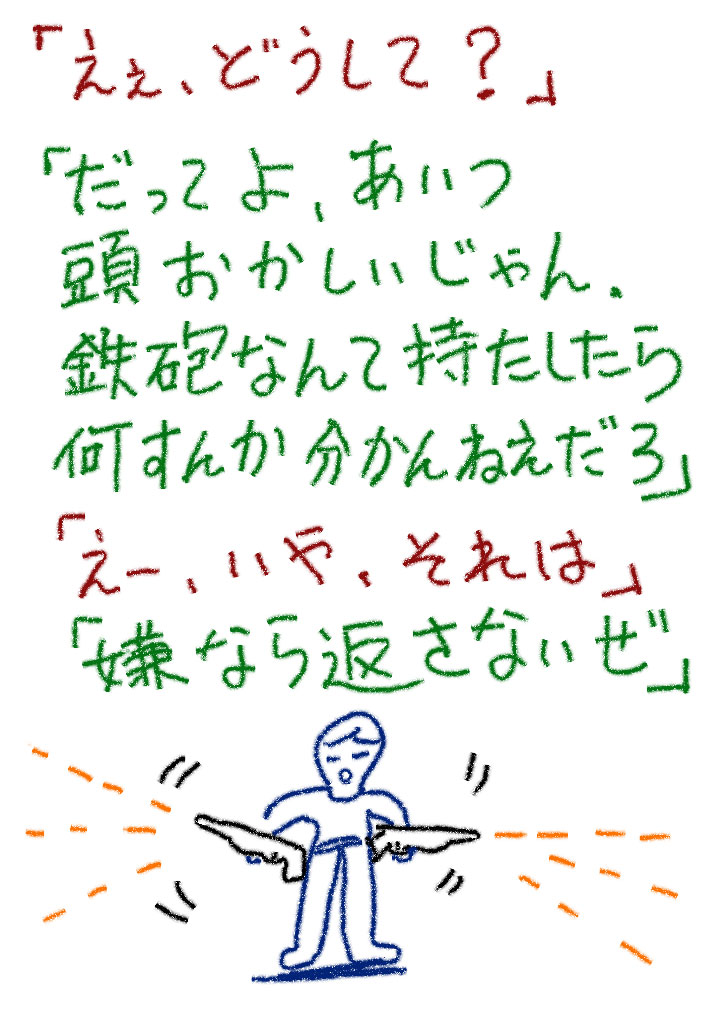 「えぇ、どうして?」
「だってよ、あいつ
頭おかしいじゃん.
鉄砲なんて持たしたら
何すんか分かんねえだろ」
「えー、いや、それは」
「嫌なら返さないぜ」